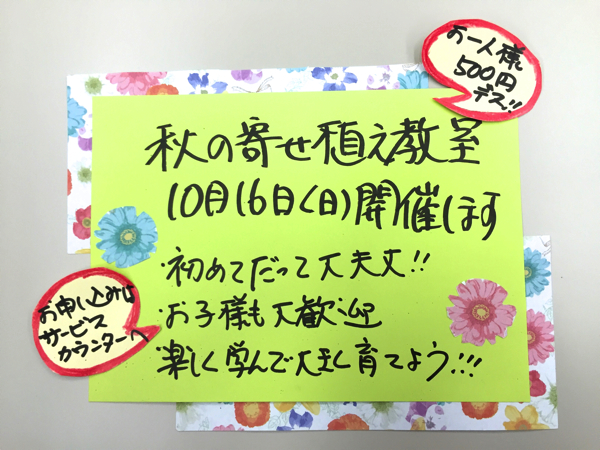 お一人様
500円
デス!!
秋の寄せ植え教室
10月16日(日)開催します
・初めてだって大丈夫!!
・お子様も大歓迎
・楽しく学んで大きく育てよう!!!
お申し込みは
サービス
カウンターへ